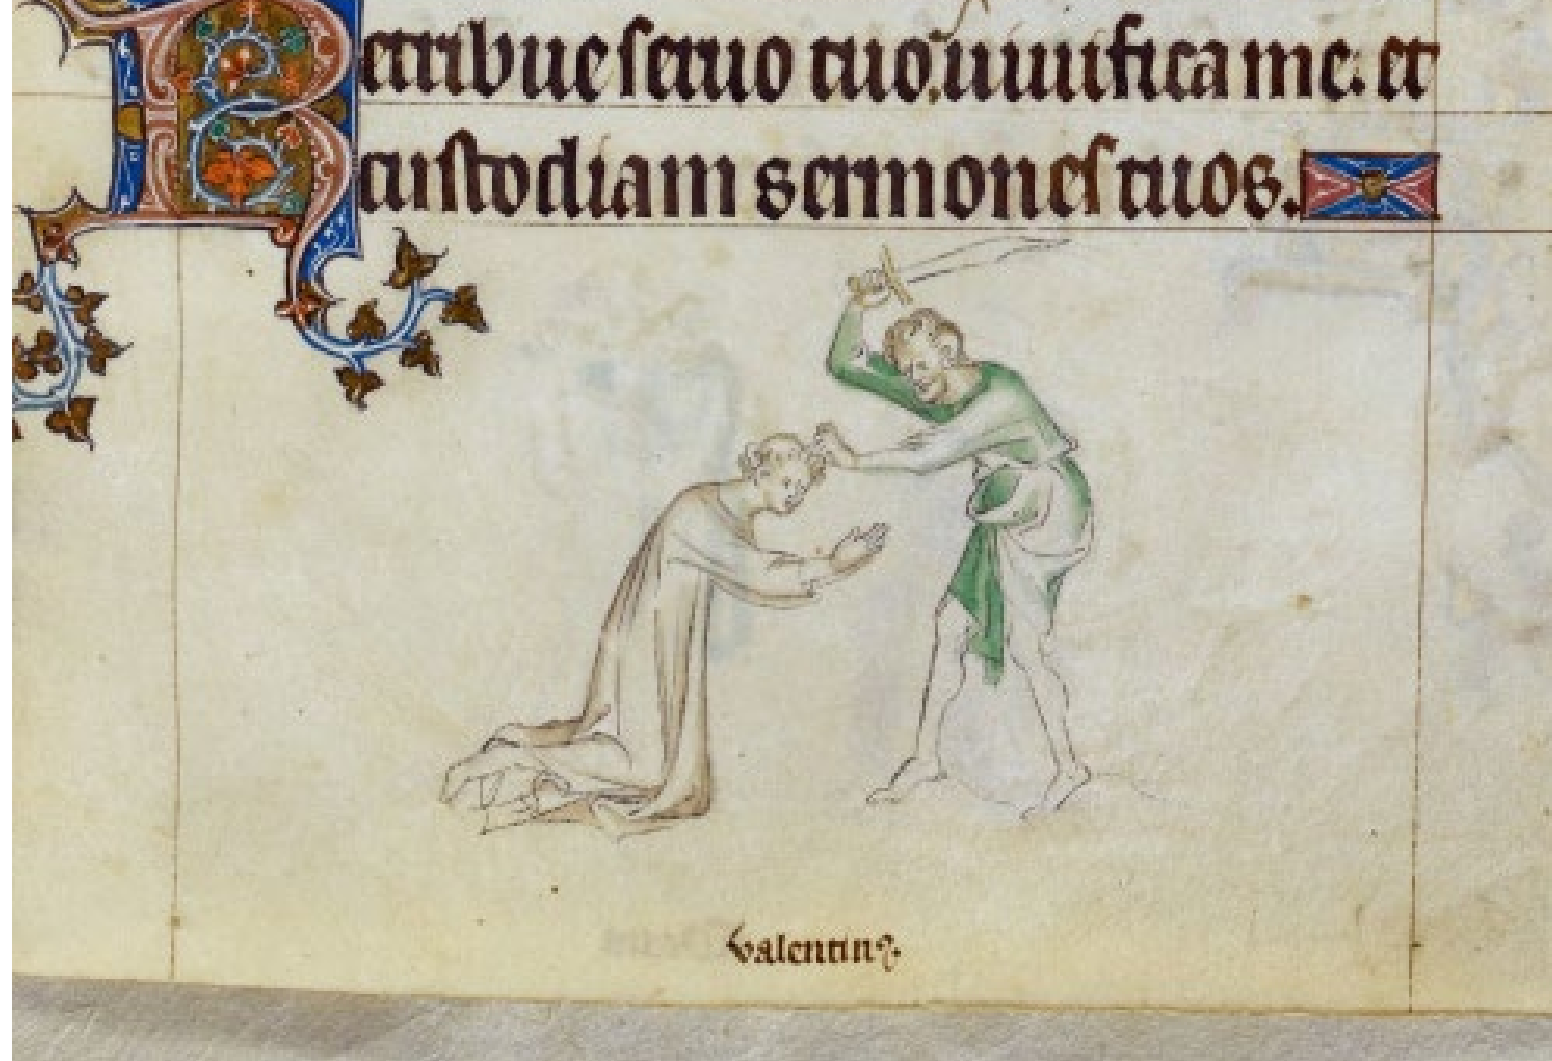 Retribue seruo tuo. uiuifica me. et
custodiam sermones tuos.
Valentinꝰ.